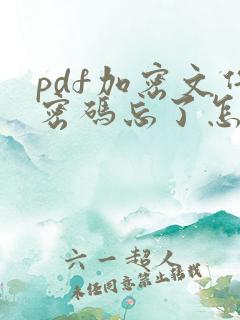 pdf加密文件
密码忘了怎
六一超人
未经同意禁止转载